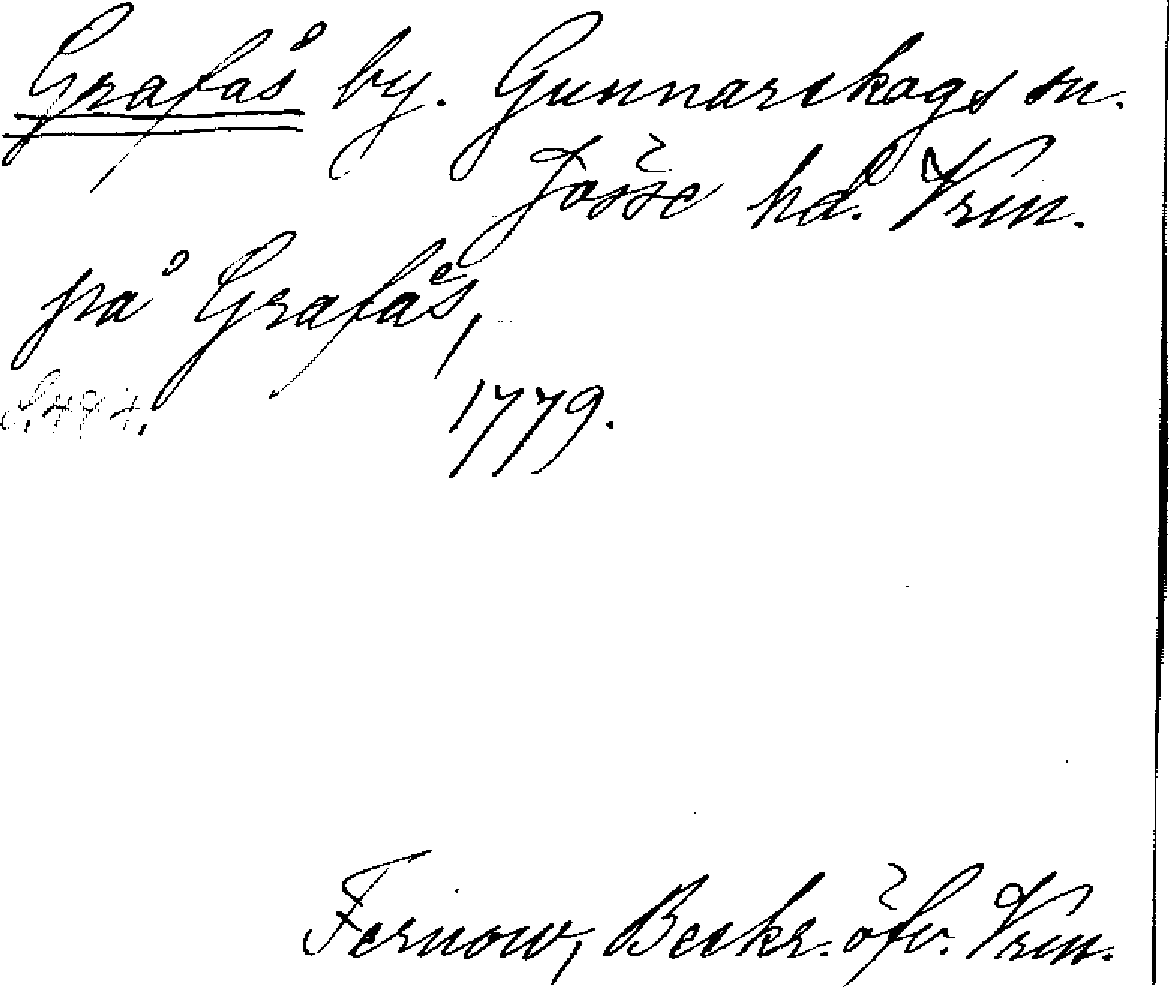 Grafås by. Gunnarskogs sn.
Jösse hd. Vrm.
på Grafås,
S. 484.
1779.
Fernow, Beskr. öfv. Vrm.